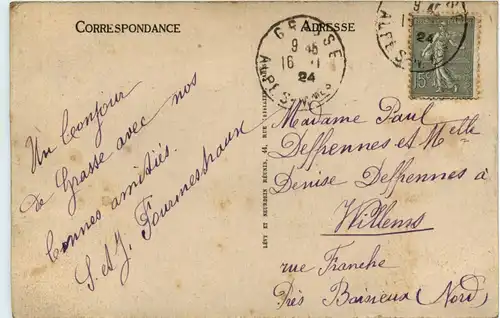 CORRESPONDANCE
ADRESSE
GRASSE
9 45
16 - 1
24
ALPES-MMES
9 45
24
ALPES
15c
Un bonjour
de Grasse avec nos
bonnes amitiés.
S. et J. Fourmestraux
LÉVY ET NEURDEIN RÉUNIS, 44, RUE LETELLIER
Madame Paul
Deffrennes et Melle
Denise Deffrennes à
Willems
rue Franche
Près Baisieux (Nord)